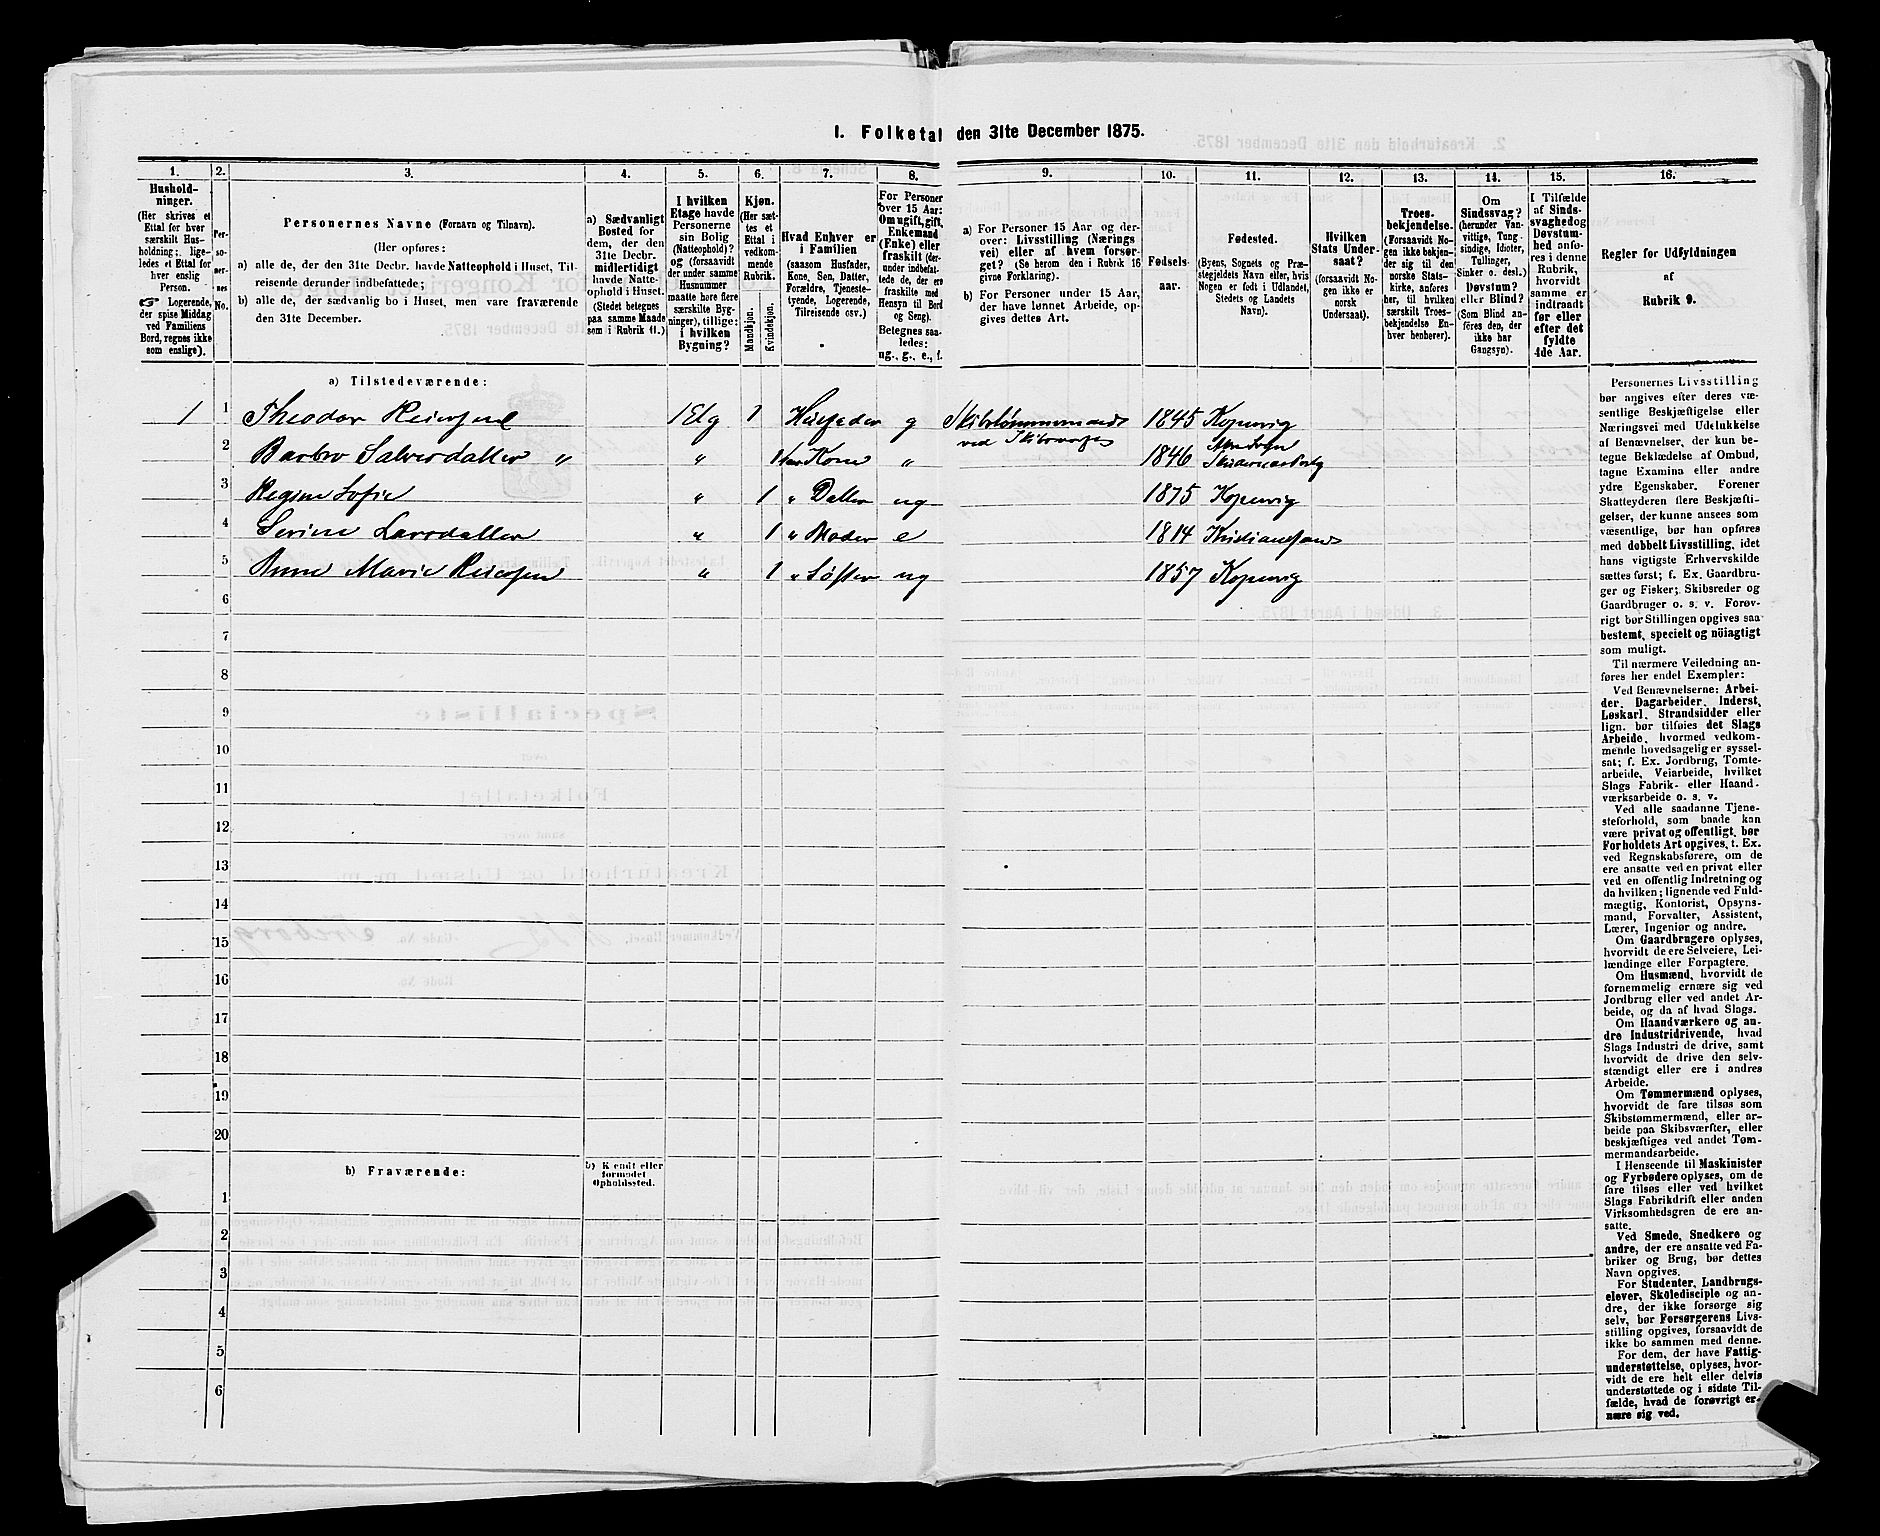 1. Folketal den 31te December 1875.
1.
2.
3.
4.
5.
6.
7.
8.
9.
10.
11.
12.
13.
14.
15.
16.
Hushold-
ninger.
(Her skrives et
Ettal for hver
særskilt Hus-
holdning; lige-
ledes et Ettal for
hver enslig
Person.
☞ Logerende,
der spise Middag
ved Familiens
Bord, regnes ikke
som enslige).
Per-
so-
ner-
nes
No.
Personernes Navne (Fornavn og Tilnavn).
(Her opføres:
a) alle de, der den 31te Decbr. havde Natteophold i Huset, Til-
reisende derunder indbefattede;
b) alle de, der sædvanlig bo i Huset, men vare fraværende
den 31te December.
a) Sædvanligt
Bosted for
dem, der den
31te Decbr.
midlertidigt
havde Natte-
ophold i Huset.
(Stedet betegnes
paa samme Maade
som i Rubrik 11.)
I hvilken
Etage havde
Personerne
sin Bolig
(Natteophold)?
og (forsaavidt
der under samme
Husnummer
maatte høre flere
særskilte Byg-
ninger), tillige:
i hvilken
Bygning?
Kjøn.
(Her sæt-
tes et
Ettal i
vedkom-
mende
Rubrik.
Mandkjøn.
Kvindekjøn.
Hvad Enhver er
i Familien
(saasom Husfader,
Kone, Søn, Datter,
Forældre, Tjeneste-
tyende, Logerende,
Tilreisende osv.)
For Personer
over 15 Aar:
Om ugift, gift,
Enkemand
(Enke) eller
fraskilt (der-
under indbefat-
tede de, der ere
fraskilte med
Hensyn til Bord
og Seng).
Betegnes saa-
ledes:
ug., g., e., f.
a) For Personer 15 Aar og der-
over: Livsstilling (Nærings
vei) eller af hvem forsør-
get? (Se herom den i Rubrik 16
givne Forklaring).
b) For Personer under 15 Aar,
der have lønnet Arbeide, op-
gives dettes Art.
Fødsels-
aar.
Fødested.
(Byens, Sognets og Præ-
stegjeldets Navn eller, hvis
Nogen er født i Udlandet,
Stedets og Landets
Navn).
Hvilken
Stats Under-
saat?
(forsaavidt No-
gen ikke er
norsk
Undersaat).
Troes-
bekjendelse.
(Forsaavidt No-
gen ikke bekjen-
der sig til den
norske Stats-
kirke, anføres
her, til hvilken
særskilt Troes-
bekjendelse En-
hver henhører).
Om
Sindssvag?
(herunder Van-
vittige, Tung-
sindige, Idioter,
Tullinger,
Sinker o. desl.)
Døvstum?
eller Blind?
(Som Blind an-
føres den, der
ikke har
Gangsyn).
I Tilfælde
af Sinds-
svaghed og
Døvstum-
hed anfø-
res i denne
Rubrik,
hvorvidt
samme er
indtraadt
før eller
efter det
fyldte
4de Aar.
Regler for Udfyldningen
af
Rubrik 9.
a) Tilstedeværende:
1 1 Theodor Reiersen 1 Etg 1 Husfader g Skibstømmermand 1845 Kopervig
ved
2 Barbro Salvesdatter " " 1 hans Kone " 1846
3 Regine Sofie " 1 " Datter ug 1875 Kopervig
4 Serine Larsdatter " 1 " Moder e 1814 Kristiansand
5 Anne Marie Reiersen " 1 " Søster ug 1857 Kopervig
6
7
8
9
10
11
12
13
14
15
16
17
18
19
20
b) Fraværende:
b) Kjendt eller
formodet
Opholdssted.
1
2
3
4
5
6
Personernes Livsstilling
bør angives efter deres væ-
sentlige Beskjæftigelse eller
Næringsvei med Udelukkelse
af Benævnelser, der kun be-
tegne Beklædelse af Ombud,
tagne Examina eller andre
ydre Egenskaber. Forener
Skatteyderen flere Beskjæfti-
gelser, der kunne ansees som
væsentlige, bør han opføres
med dobbelt Livsstilling, idet
hans vigtigste Erhvervskilde
sættes først; f. Ex. Gaardbru-
ger og Fisker; Skibsreder og
Gaardbruger o. s. v. Forøv-
rigt bør Stillingen opgives saa
bestemt, specielt og nöiagtigt
som muligt.
Til nærmere Veiledning an-
føres her endel Exempler:
Ved Benævnelserne: Arbei-
der, Dagarbeider, Inderst,
Løskarl, Strandsidder eller
lign. bør tilføies det Slags
Arbeide, hvormed vedkom-
mende hovedsagelig er syssel-
sat; f. Ex. Jordbrug, Tomte-
arbeide, Veiarbeide, hvilket
Slags Fabrik- eller Haand-
værksarbeide o. s. v.
Ved alle saadanne Tjene-
steforhold, som baade kan
være privat og offentligt, bør
Forholdets Art opgives, t. Ex.
ved Regnskabsførere, om de
ere ansatte ved en privat eller
ved en offentlig Indretning og
da hvilken; lignende ved Fuld-
mægtig, Kontorist, Opsyns-
mand, Forvalter, Assistent,
Lærer, Ingeniør og andre.
Om Gaardbrugere oplyses,
hvorvidt de ere Selveiere, Lei-
lændinge eller Forpagtere.
Om Husmænd, hvorvidt de
fornemmelig ernære sig ved
Jordbrug eller ved andet Ar-
beide, og da af hvad Slags.
Om Haandværkere og an-
dre Industridrivende, hvad
Slags Industri de drive, samt
hvorvidt de drive den selv-
stændigt eller ere i andres
Arbeide.
Om Tømmermænd oplyses,
hvorvidt de fare tilsøs som
Skibstømmermænd, eller ar-
beide paa Skibsværfter, eller
beskjæftiges ved andet Tøm-
mermandsarbeide.
I Henseende til Maskinister
og Fyrbødere oplyses, om de
fare tilsøs eller ved hvilket
Slags Fabrikdrift eller anden
Virksomhedsgren de ere an-
satte.
Ved Smede, Snedkere og
andre, der ere ansatte ved Fa-
briker og Brug, bør dettes
Navn opgives.
For Studenter, Landbrugs-
elever, Skoledisciple og an-
dre, der ikke forsørge sig
selv, bør Forsørgerens Livs-
stilling opgives, forsaavidt de
ikke bo sammen med denne.
For dem, der have Fattig-
understøttelse, oplyses, hvor-
vidt de ere helt eller delvis
understøttede og i sidste Til-
fælde, hvad de forøvrigt er-
nære sig ved.